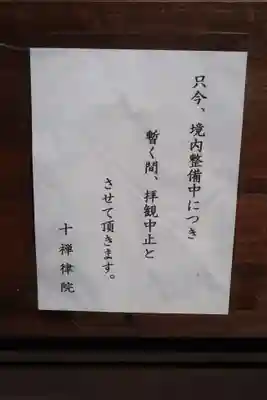 只今、境内整備中につき
暫く間、拝観中止と
させて頂きます。
十禅律院